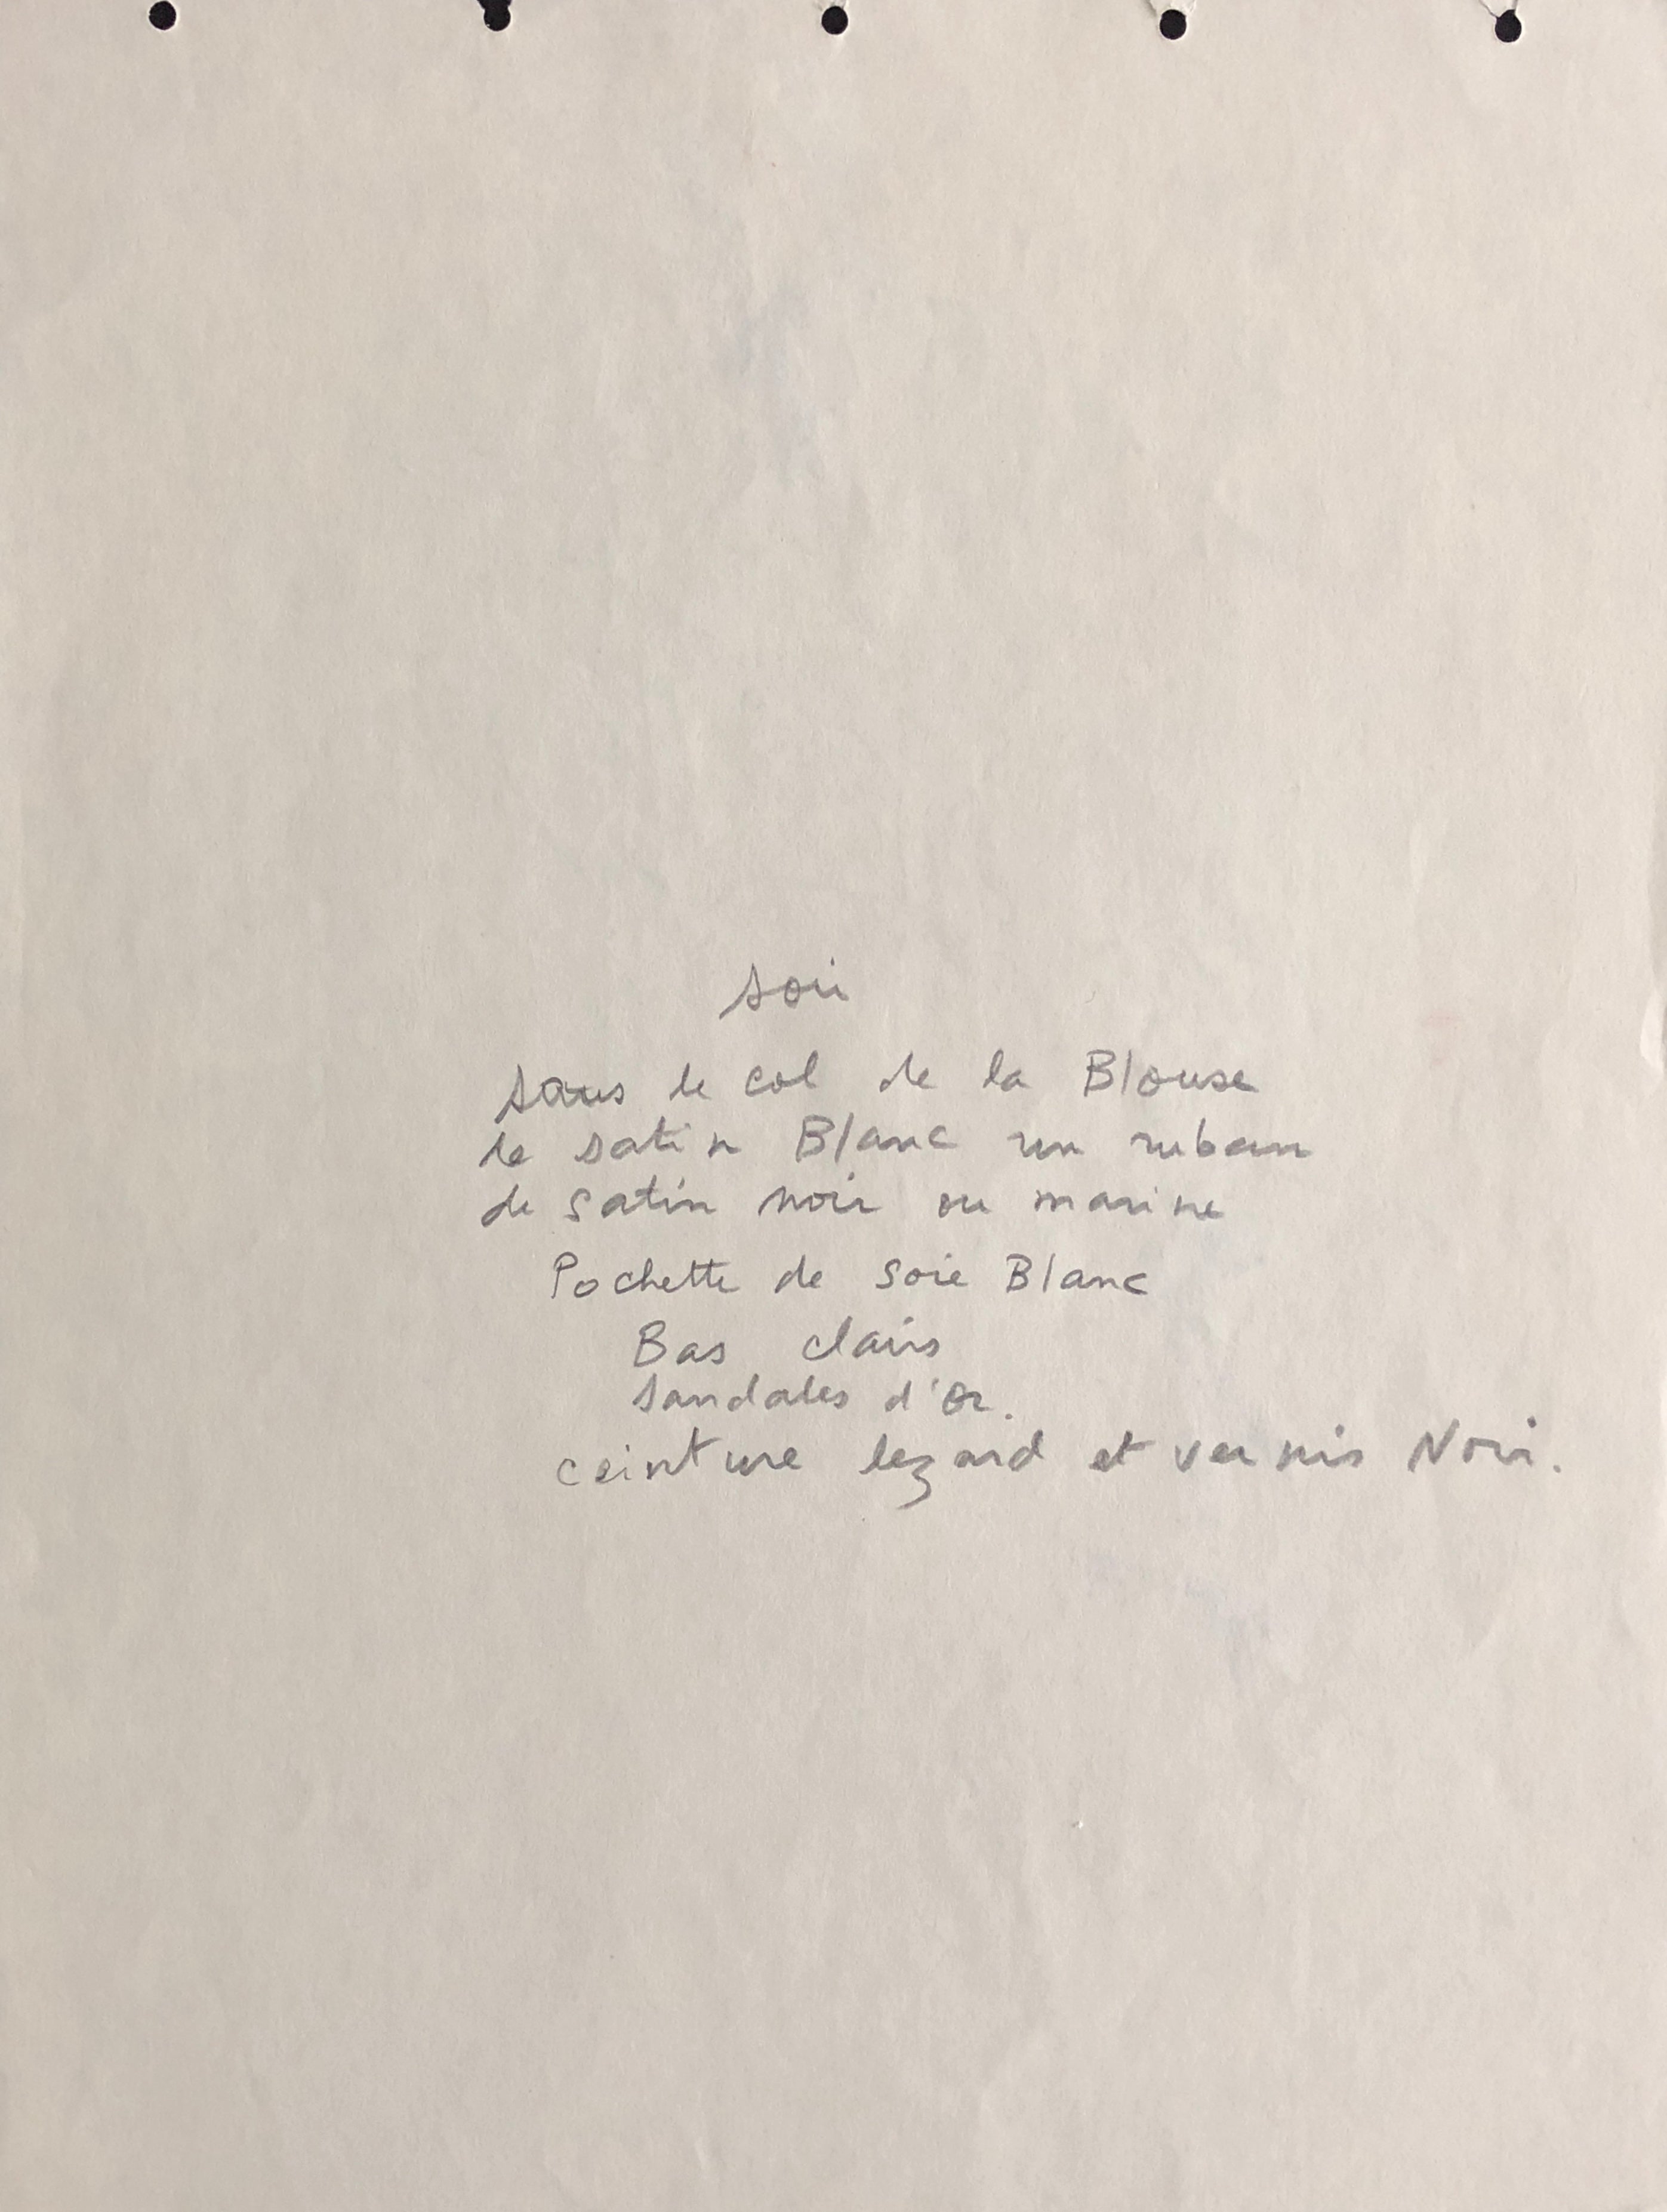 soir
sous le col de la Blouse
de satin Blanc un ruban
de satin noir ou marine
Pochette de soie Blanc
Bas clairs
Sandales d'or.
ceinture lezard et vernis Noir.